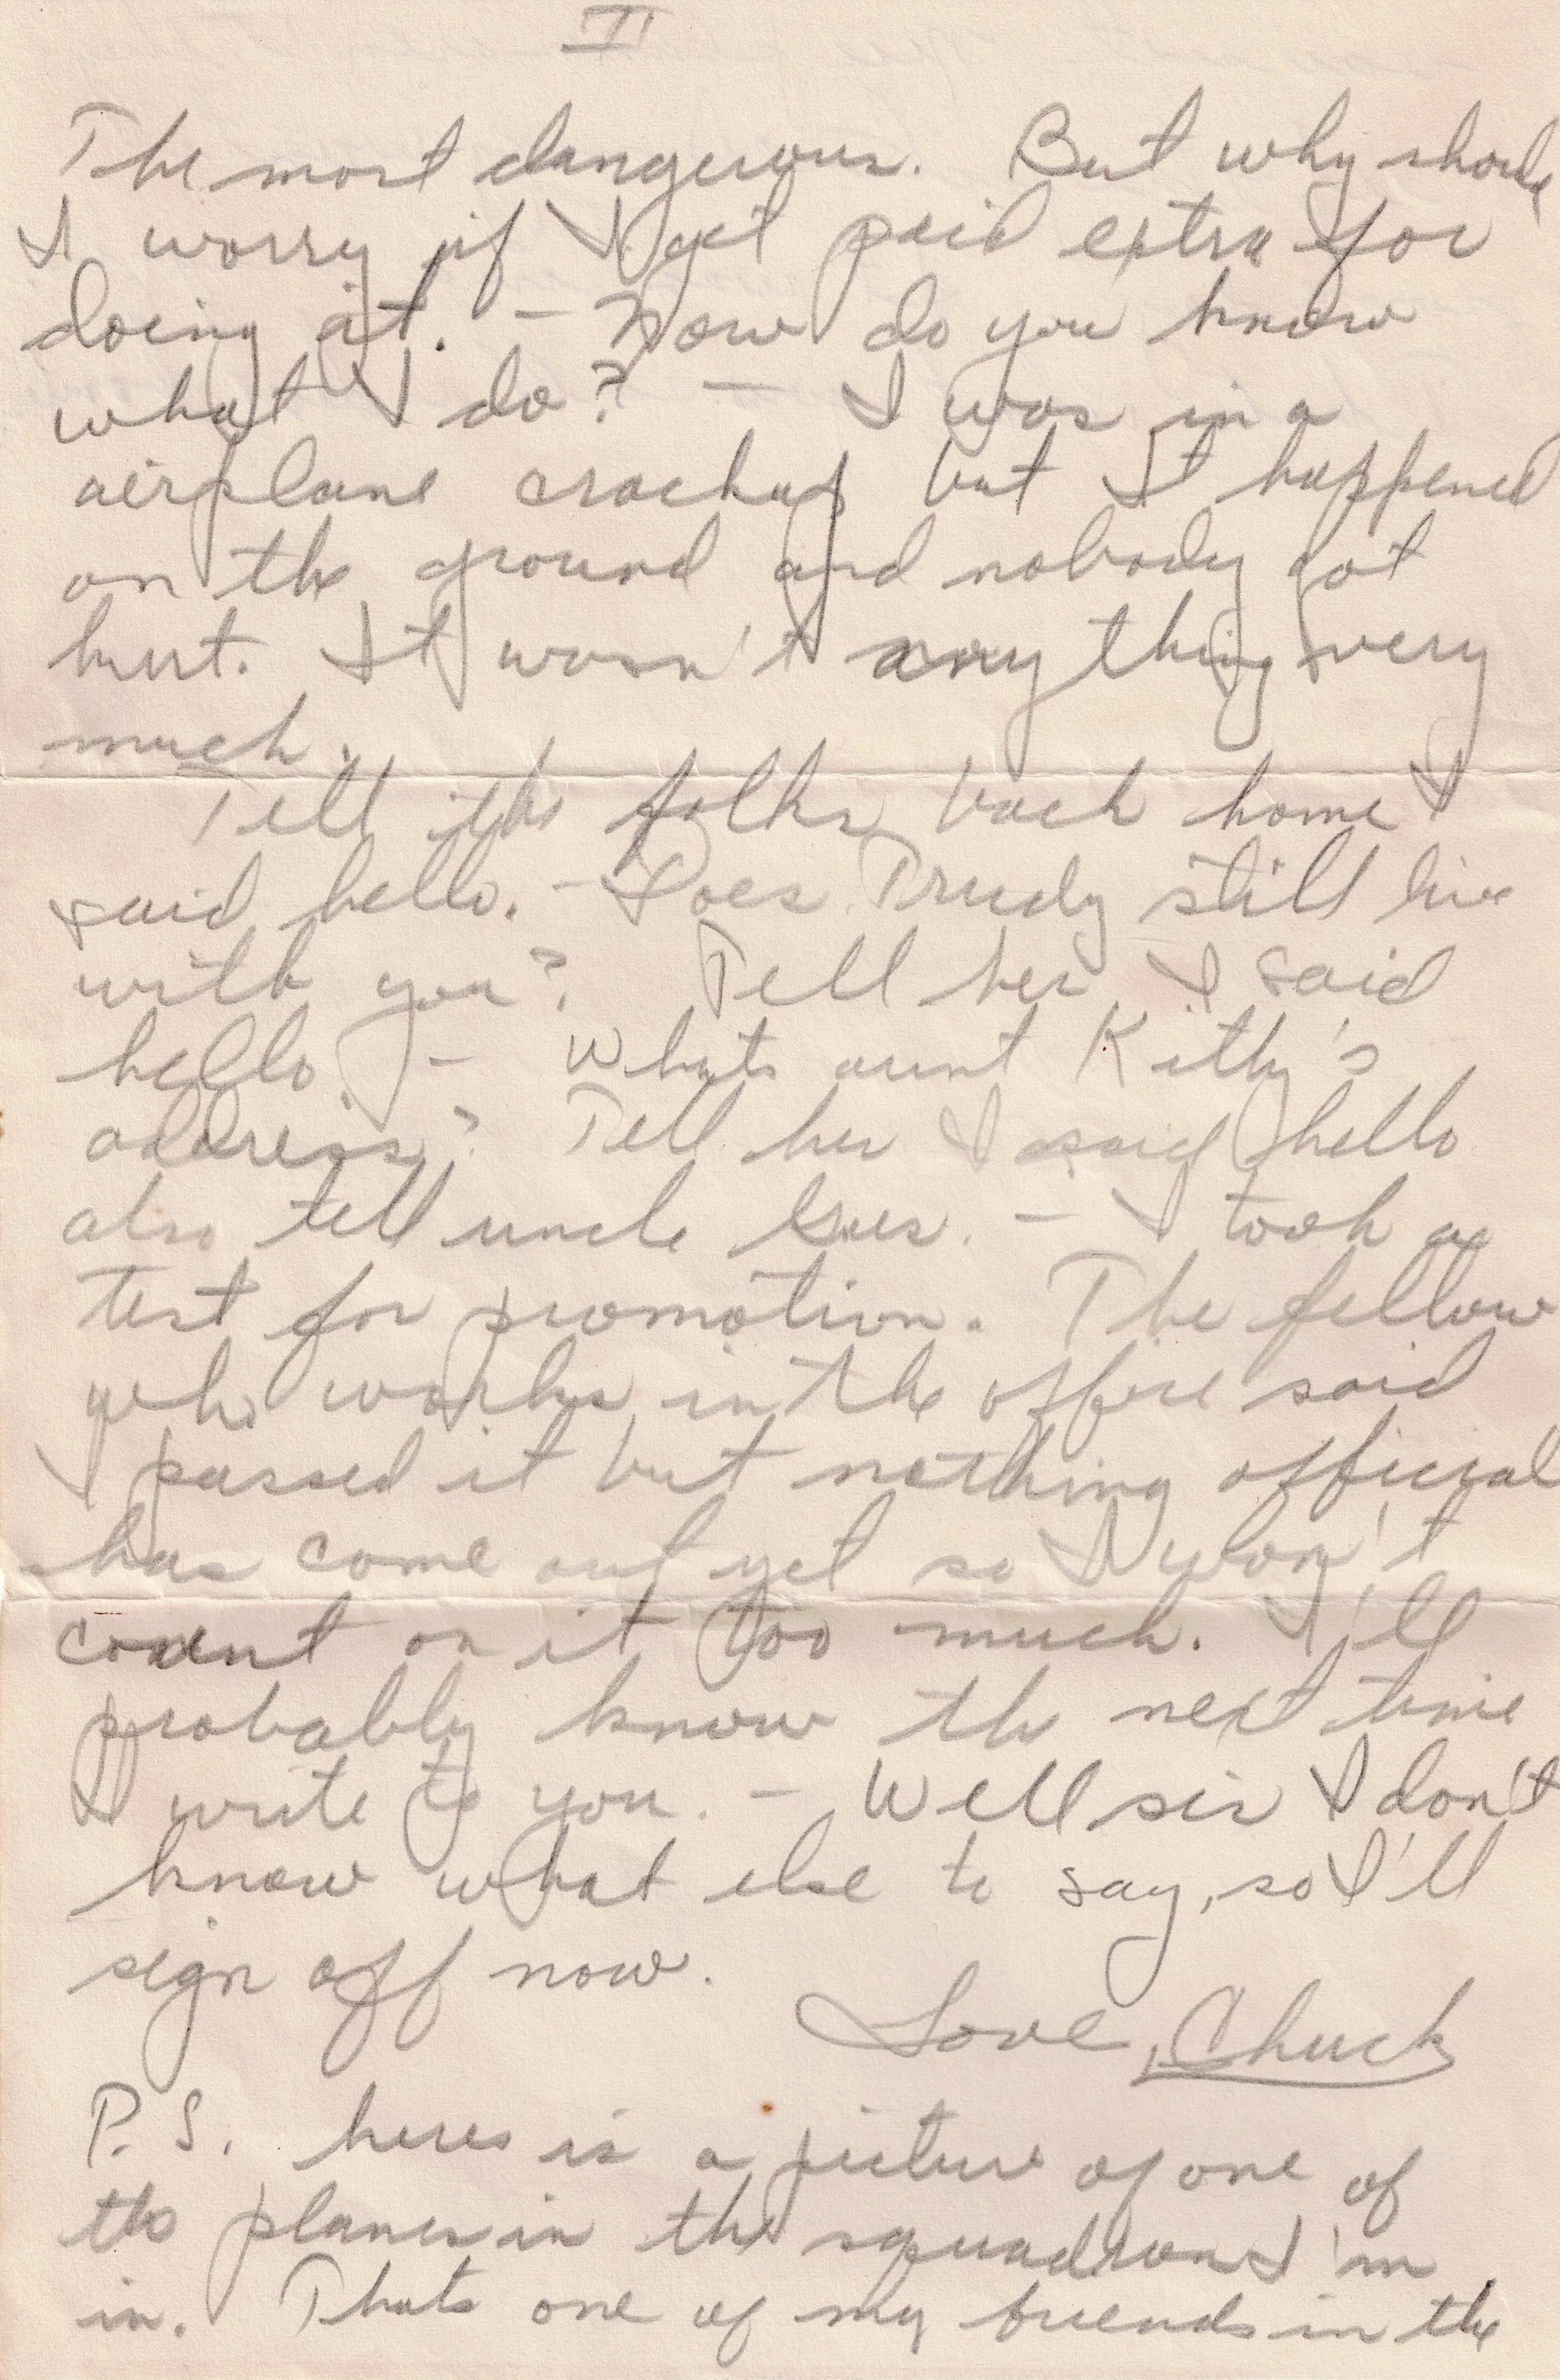 II
The most dangerous. But why should
I worry if I get paid extra for
doing it. – Now do you know
what I do? – I was in a
airplane crackup but It happened
on the ground and nobody got
hurt. It wasn't any thing very
much.
Tell the folks back home I
said hello. – Does Trudy still live
with you? Tell her I said
hello – Whats aunt Kitty's
address? Tell her I said hello
also tell uncle Gus. – I took a
test for promotion. The fellow
who works in the office said
I passed it but nothing official
has come out yet so I won't
count on it too much. I'll
probably know the next time
I write to you. – Well sir I don't
know what else to say, so I'll
sign off now.
Love, Chuck
P.S. heres is a picture of one of
the planes in the squadron I'm
in. Thats one of my friends in the